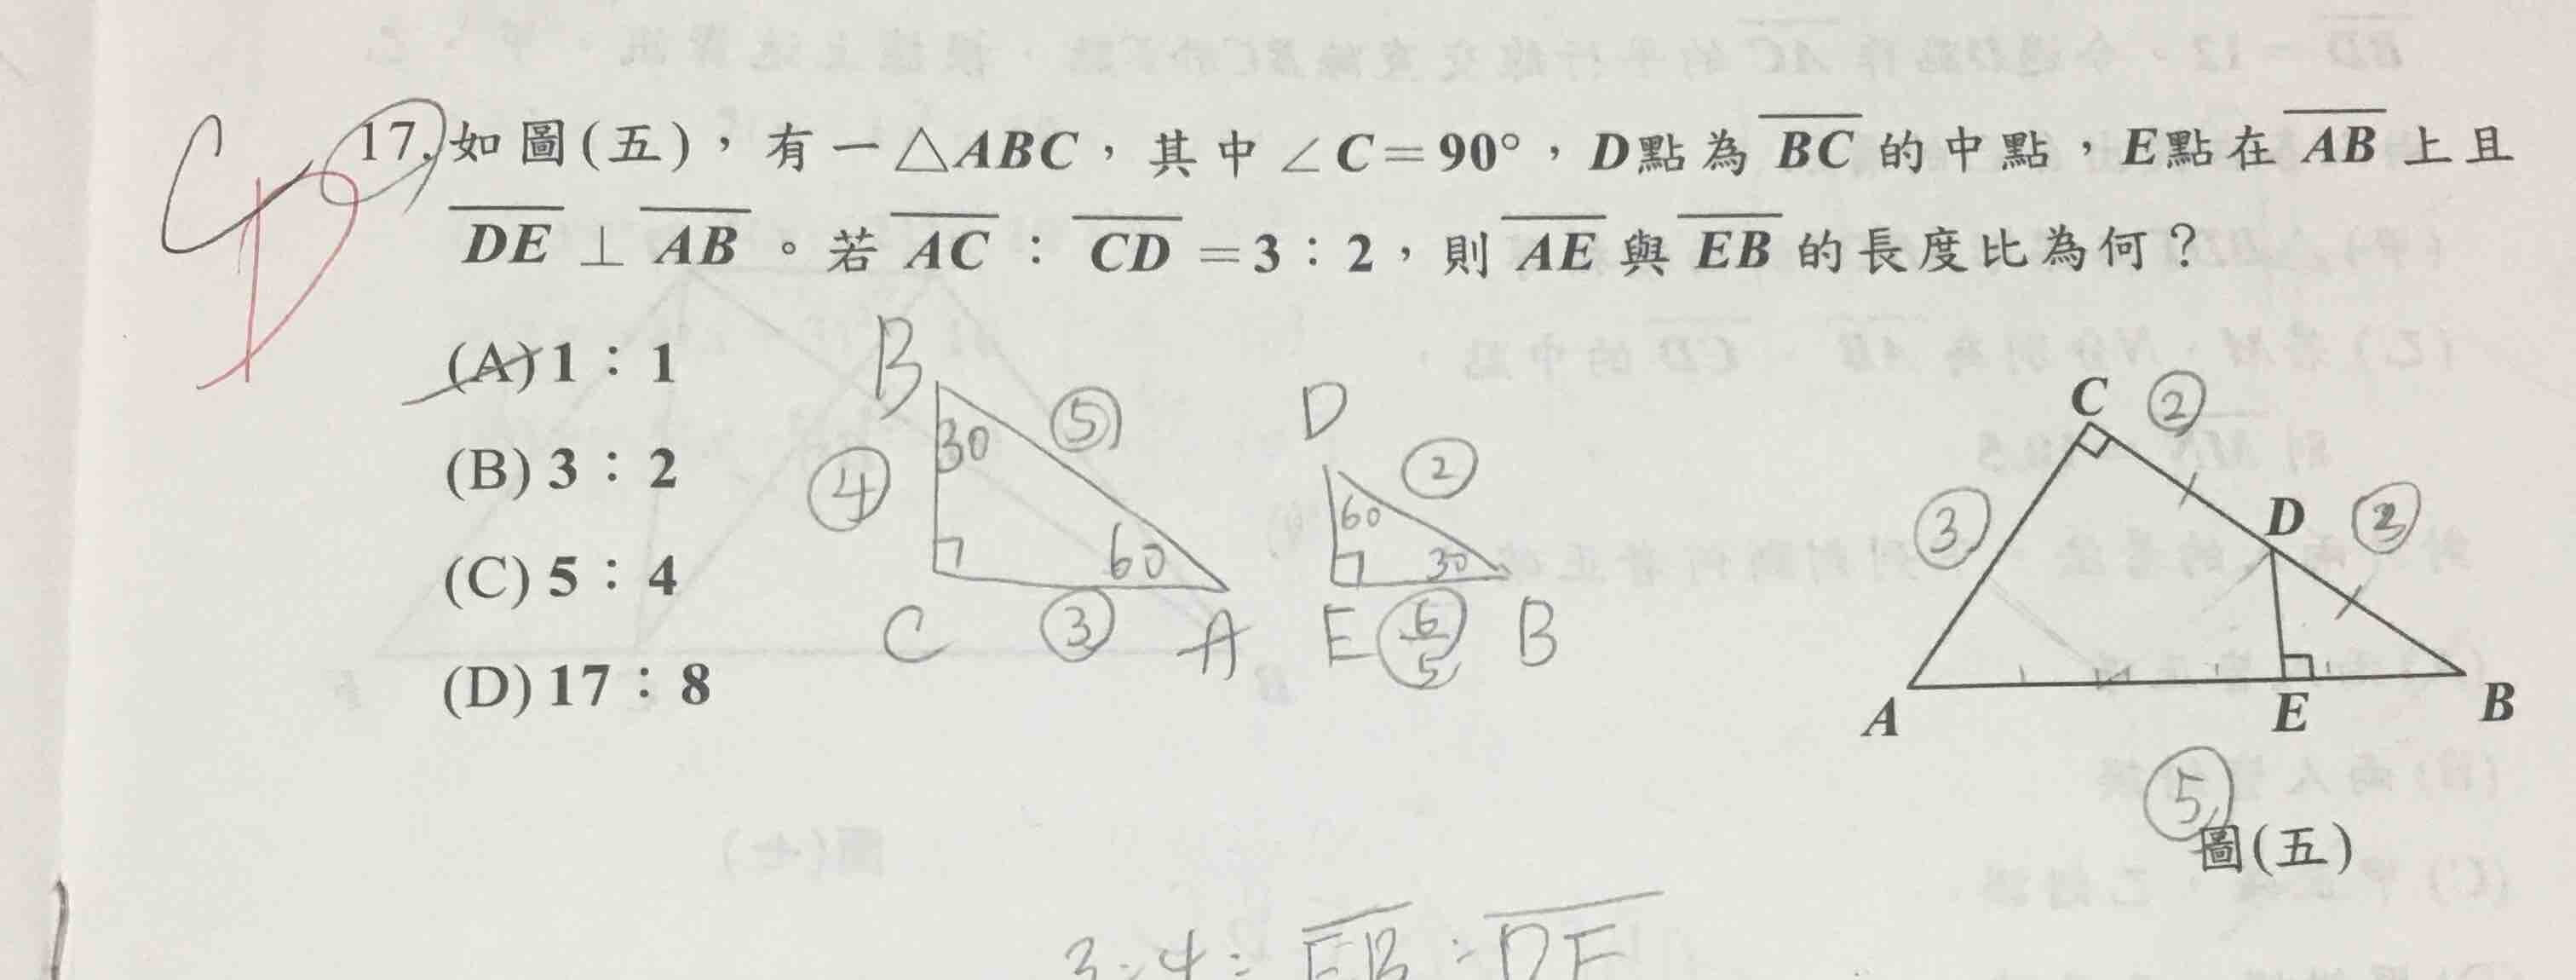 C
D
17. 如圖(五)，有一△ABC，其中∠C=90°，D點為 BC 的中點，E點在 AB 上且
DE ⊥ AB 。若 AC : CD =3：2，則 AE 與 EB 的長度比為何？
(A) 1：1
(B) 3：2
(C) 5：4
(D) 17：8
B
30
⑤
④
60
C
③
A
D
②
60
30
E
6/5
B
C
②
③
D
②
A
E
B
⑤
圖(五)
3:4= EB : DE